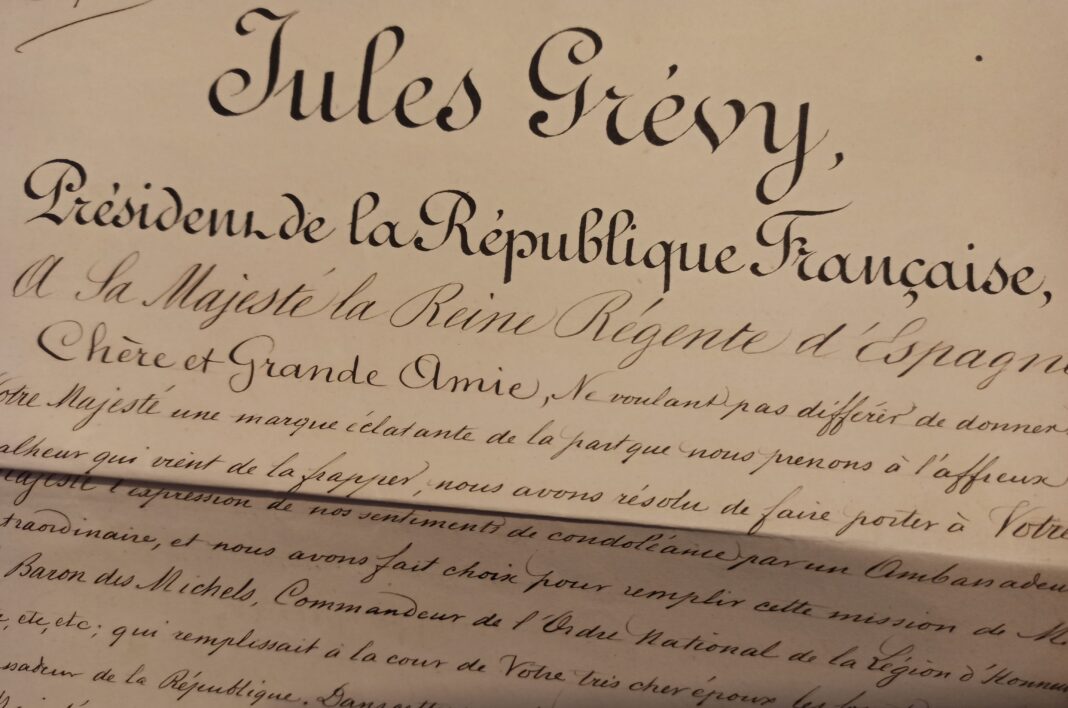 Jules Grévy,
Président de la République Française,
A Sa Majesté la Reine Régente d'Espagne
Chère et Grande Amie, Ne voulant pas différer de donner
otre Majesté une marque éclatante de la part que nous prenons à l'affreux
alheur qui vient de la frapper, nous avons résolu de faire porter à Votre
Majesté l'expression de nos sentiments de condoléance par un Ambassadeur
traordinaire, et nous avons fait choix pour remplir cette mission de M.
Baron des Michels, Commandeur de l'Ordre National de la Légion d'Honneur
, etc, etc; qui remplissait à la cour de Votre très cher époux les
ssadeur de la République.